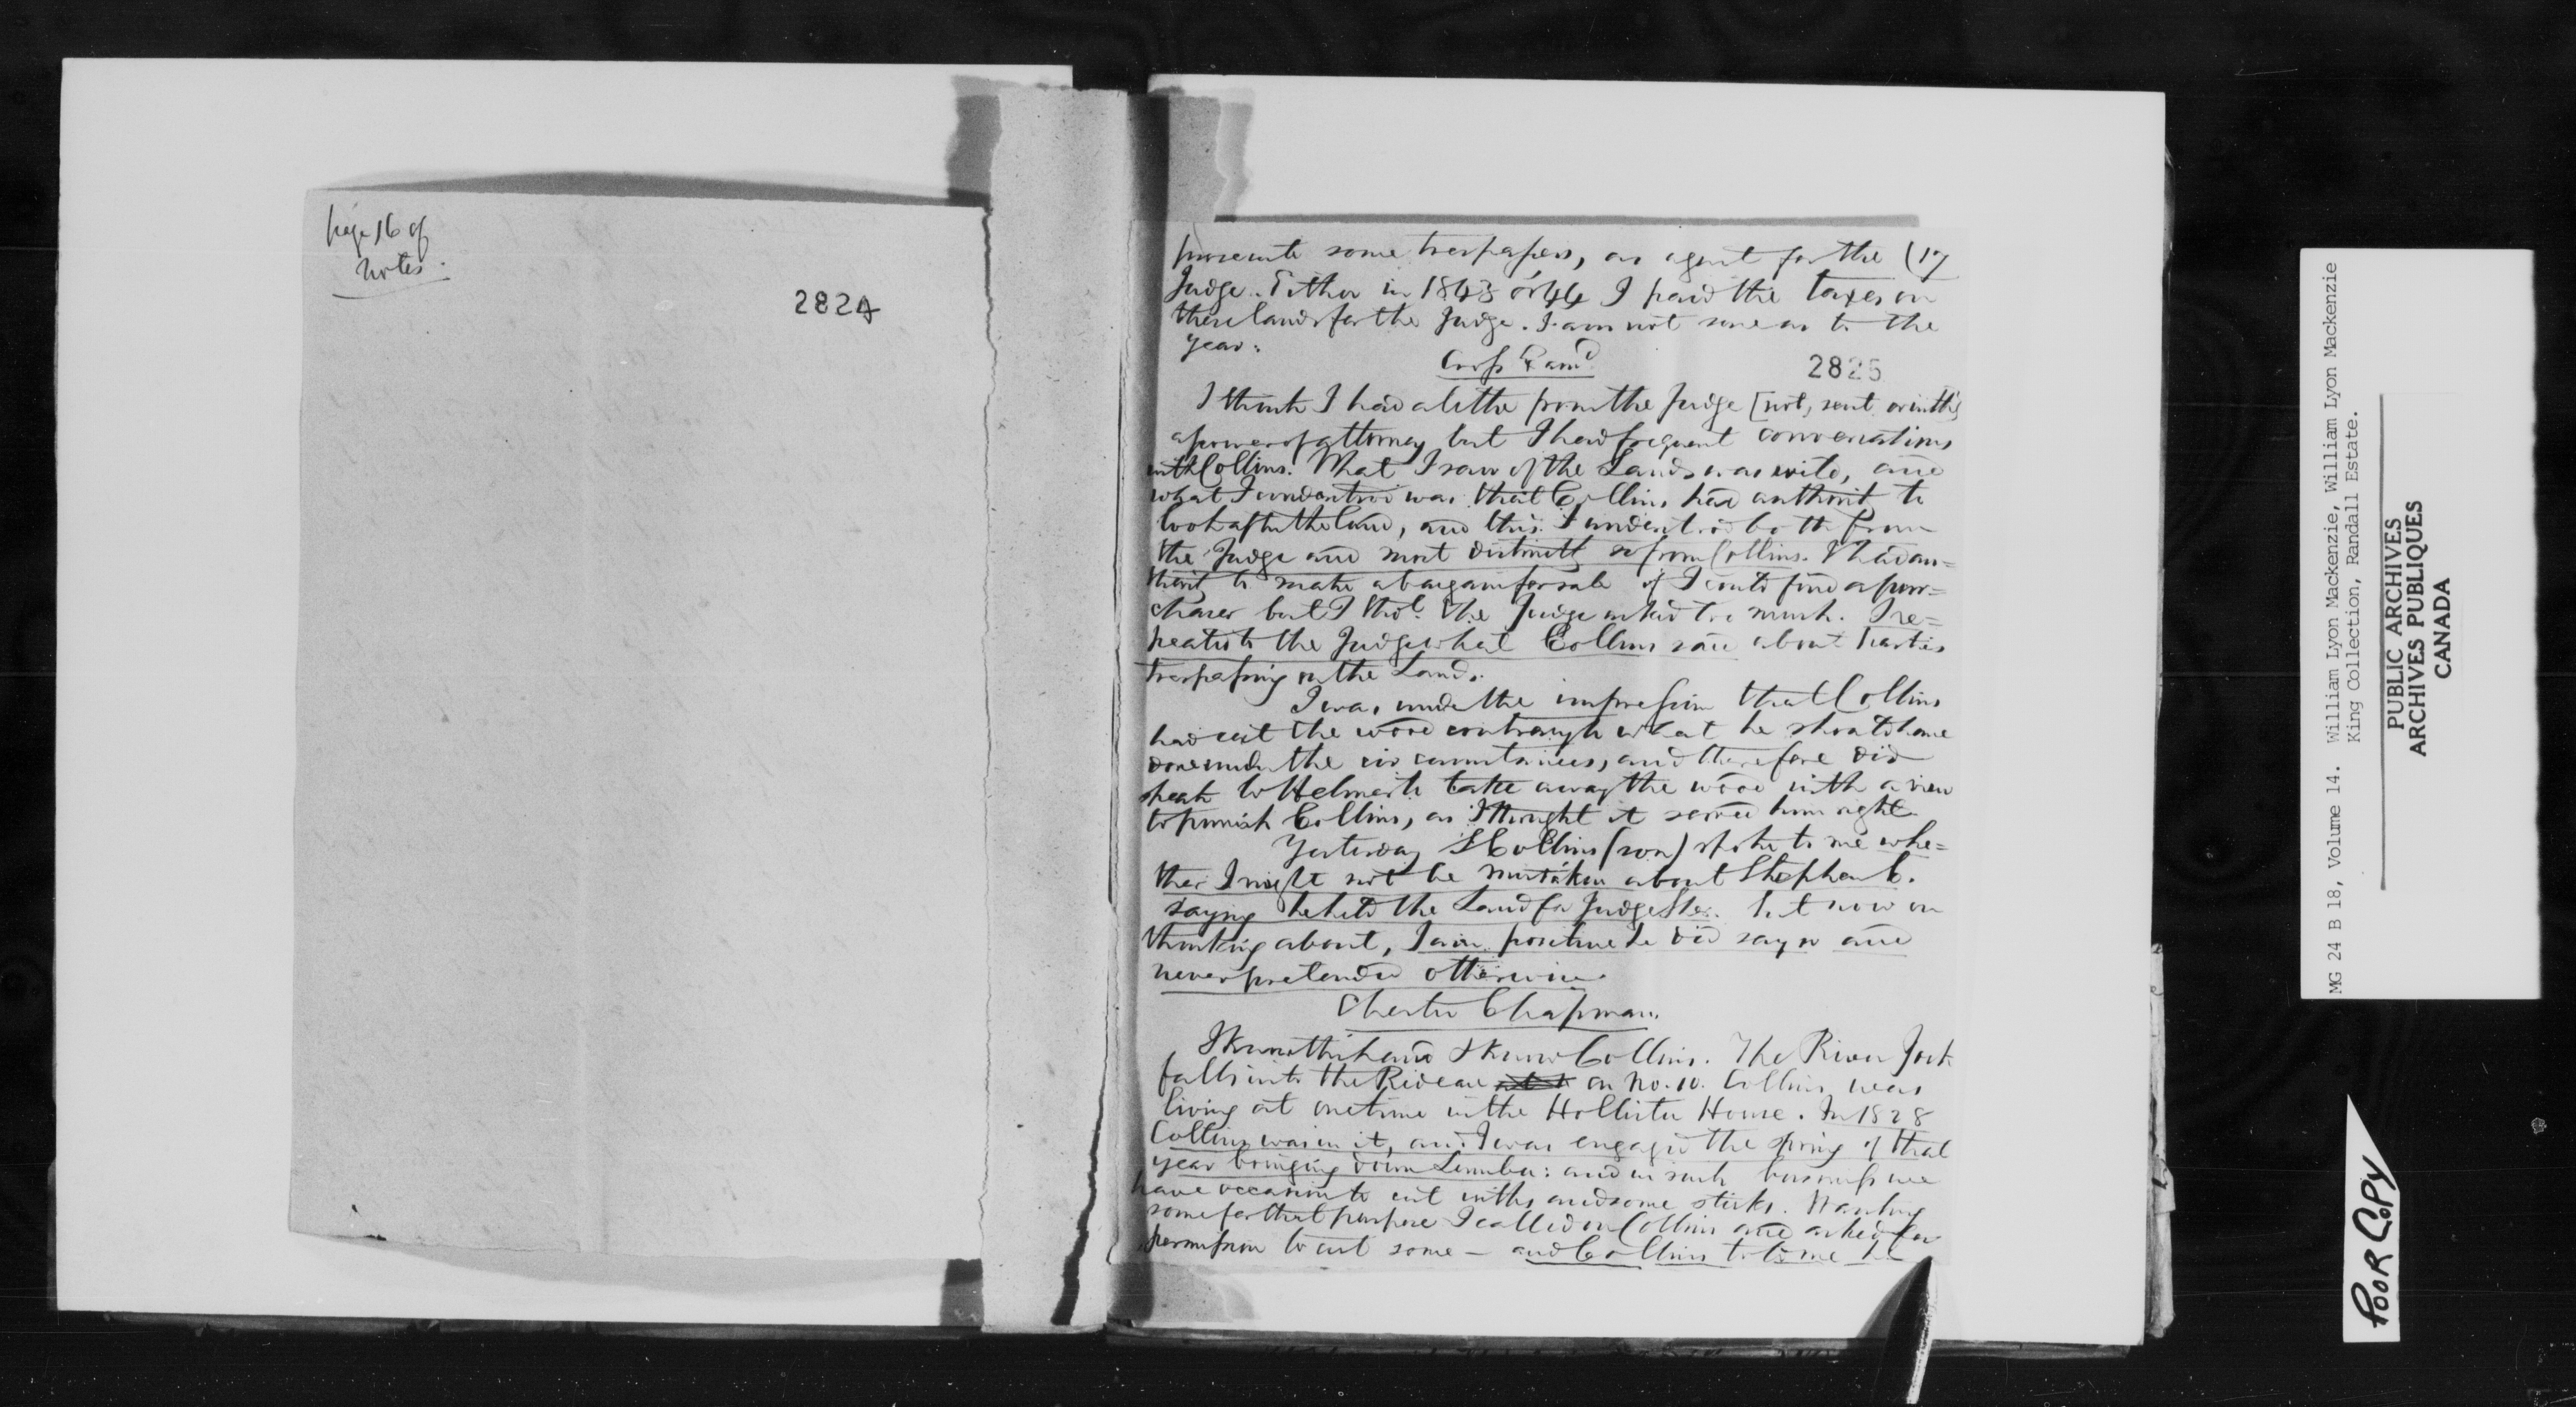 page 16 of
notes.
2824
prosecute some trespassers, as agent for the (17
Judge. Either in 1843 or 44 I paid the taxes on
these lands for the Judge. I am not sure as to the
year:
Cross Examd
2825
I think I had a letter from the Judge [not, sent or in the
a power of attorney but I had frequent conversations
with Collins. What I saw of the Lands was wild, and
what I understood was that Collins had authority to
look after the land, and this I understood both from
the Judge and most distinctly so from Collins. I had au=
thority to make a bargain for sale if I could find a pur=
chaser but I thot. the Judge asked too much. I re=
peated to the Judge what Collins said about parties
trespassing on the Lands.
I was under the impression that Collins
had cut the wood contrary to what he should have
done under the circumstances, and therefore did
speak to Helmer to take away the wood with a view
to punish Collins, as I thought it served him right.
Yesterday S Collins (son) spoke to me whe=
ther I might not be mistaken about Stephen C.
saying he held the Land for Judge Sher. but now on
thinking about, I am positive he did say so and
never pretended otherwise.
Chester Chapman.
I know this land I know Collins. The River Jock
falls into the Rideau on No. 10. Collins was
living at one time in the Hollister House. In 1828
Collins was in it, and I was engaged the spring of that
year bringing down Lumber: and in such business we
have occasion to cut withs and some sticks. Wanting
some for that purpose I called on Collins and asked for
permission to cut some – and Collins told me he
MG 24 B 18, Volume 14. William Lyon Mackenzie, William Lyon Mackenzie
King Collection, Randall Estate.
PUBLIC ARCHIVES
ARCHIVES PUBLIQUES
CANADA
POOR COPY